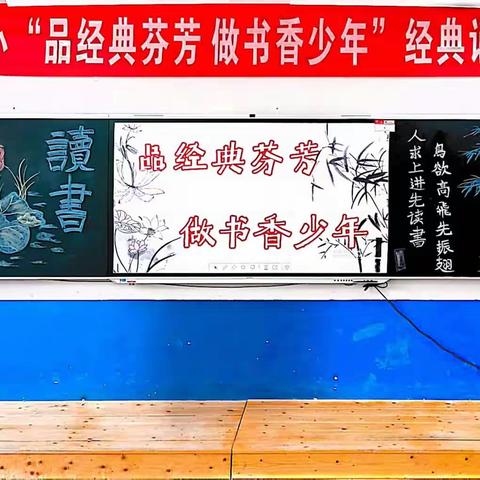 小“品经典芬芳 做书香少年”经典诵
讀書
品经典芬芳
做书香少年
鸟欲高飛先振翅
人求上进先读書